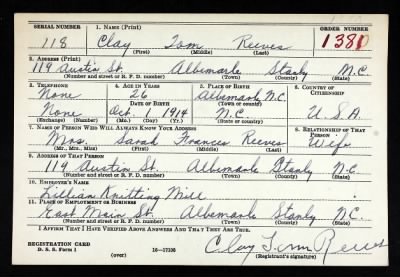 SERIAL NUMBER 1. NAME (Print) ORDER NUMBER
118 Clay Tom Reeves 1380
(First) (Middle) (Last)
2. ADDRESS (Print)
119 Austin St. Albemarle Stanly N.C.
(Number and street or R. F. D. number) (Town) (County) (State)
3. TELEPHONE 4. AGE IN YEARS 5. PLACE OF BIRTH 6. COUNTRY OF CITIZENSHIP
None 26 Albemarle N.C.
DATE OF BIRTH (Town or county)
None Oct. 1914 N.C. U.S.A.
(Exchange) (Number) (Mo.) (Day) (Yr.) (State or country)
7. NAME OF PERSON WHO WILL ALWAYS KNOW YOUR ADDRESS 8. RELATIONSHIP OF THAT PERSON
Mrs. Sarah Frances Reeves Wife
(Mr., Mrs., Miss) (First) (Middle) (Last)
9. ADDRESS OF THAT PERSON
119 Austin St. Albemarle Stanly N.C.
(Number and street or R. F. D. number) (Town) (County) (State)
10. EMPLOYER'S NAME
Lillian Knitting Mill
11. PLACE OF EMPLOYMENT OR BUSINESS
East Main St. Albemarle Stanly N.C.
(Number and street or R. F. D. number) (Town) (County) (State)
I AFFIRM THAT I HAVE VERIFIED ABOVE ANSWERS AND THAT THEY ARE TRUE.
REGISTRATION CARD
D. S. S. Form 1 16—17105 Clay Tom Reeves
(over) (Registrant's signature)